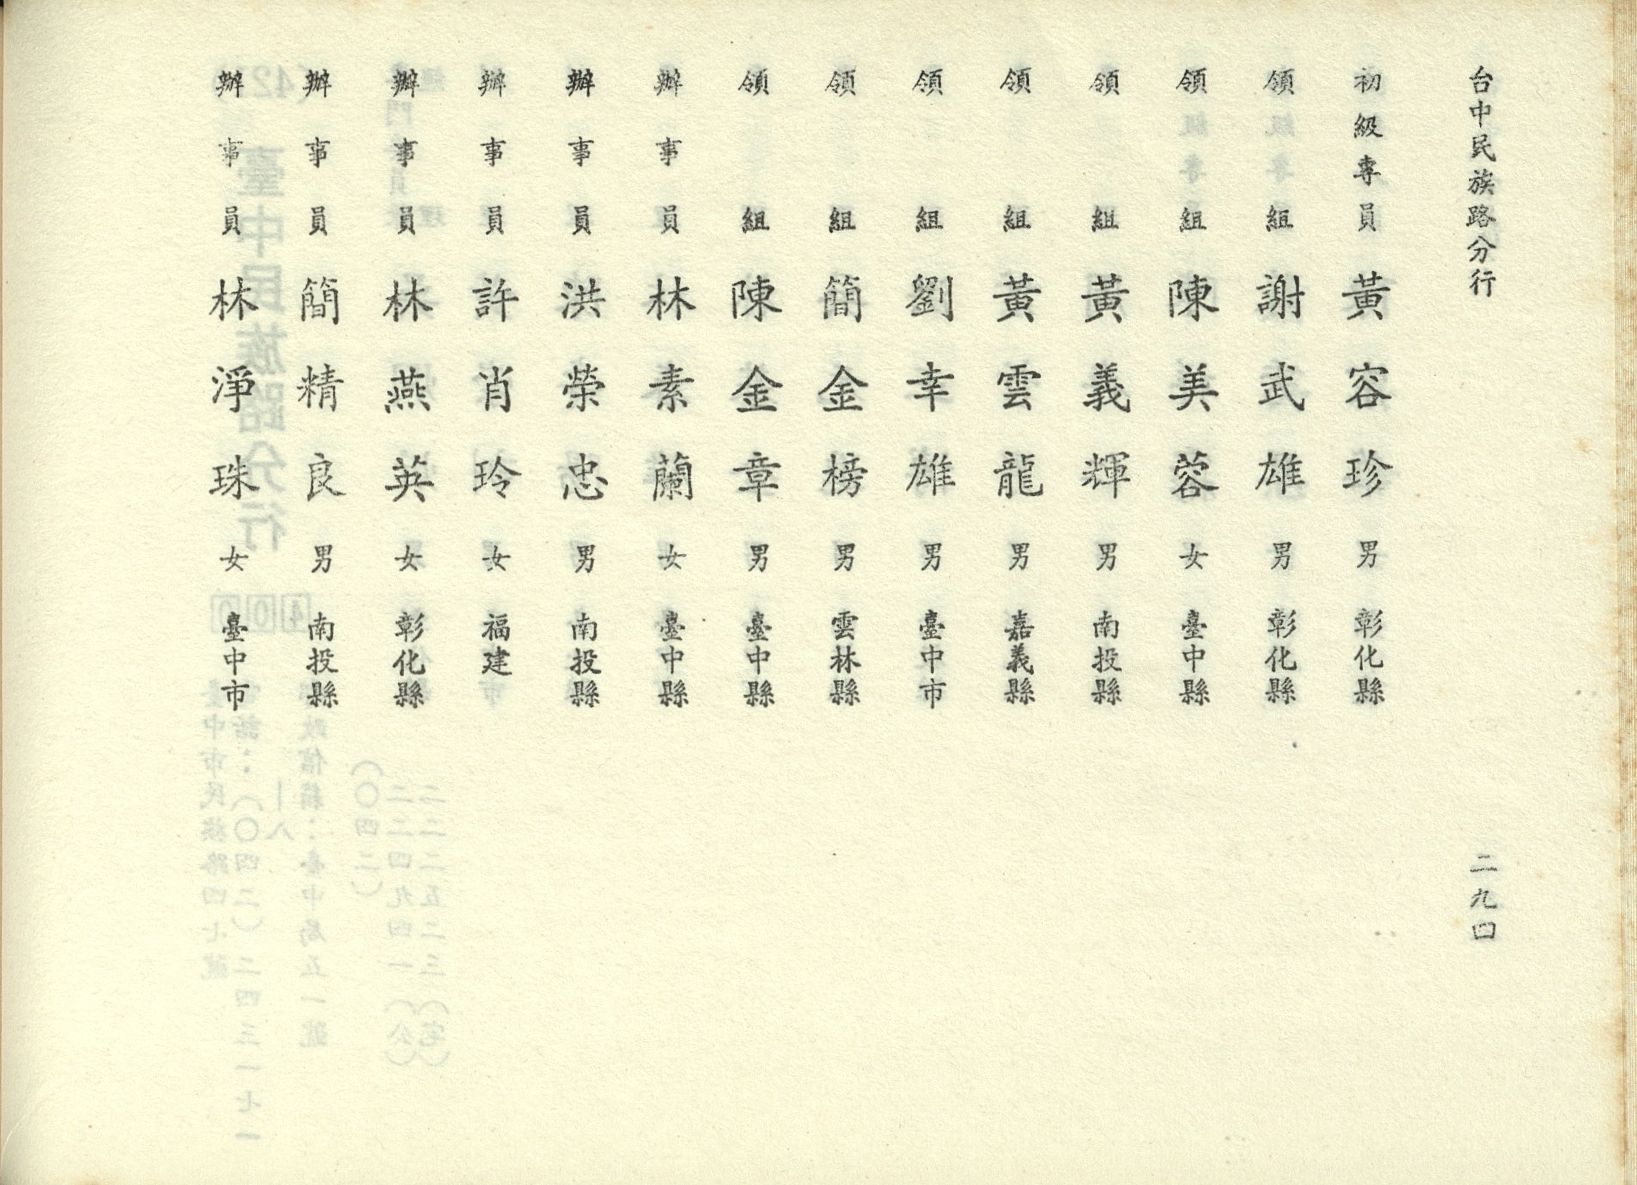 台中民族路分行
二九四
初級專員 黃容珍 男 彰化縣
領組 謝武雄 男 彰化縣
領組 陳美蓉 女 臺中縣
領組 黃義輝 男 南投縣
領組 黃雲龍 男 嘉義縣
領組 劉幸雄 男 臺中市
領組 簡金榜 男 雲林縣
領組 陳金章 男 臺中縣
辦事員 林素蘭 女 臺中縣
辦事員 洪榮忠 男 南投縣
辦事員 許肖玲 女 福建
辦事員 林燕英 女 彰化縣
辦事員 簡精良 男 南投縣
辦事員 林淨珠 女 臺中市